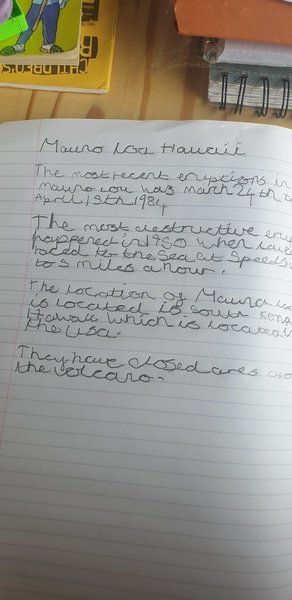 CHILDREN'S
Mauno Loa Hawaii
The most recent eruptions in
Mauno Lou was march 24th
April 15th 1984
The most destructive eru
happened in 1950 when lav
raced to the sea at speeds
to 5 miles a hour.
The location of Mauna Loa
is located is south Kona
Hawaii which is located
the USA.
They have closed ares
the volcano.